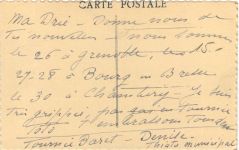 CARTE POSTALE
Ma Drié - Donne nous de
tes nouvelles - nous sommes
le 26 à grenoble, les 15.
27.28 à Bourg en Bresse
le 30 à Chambéry - Je suis
très grippée, pas gai en tournée
Toto
Tournée Baret - Denise
Théâtre municipal